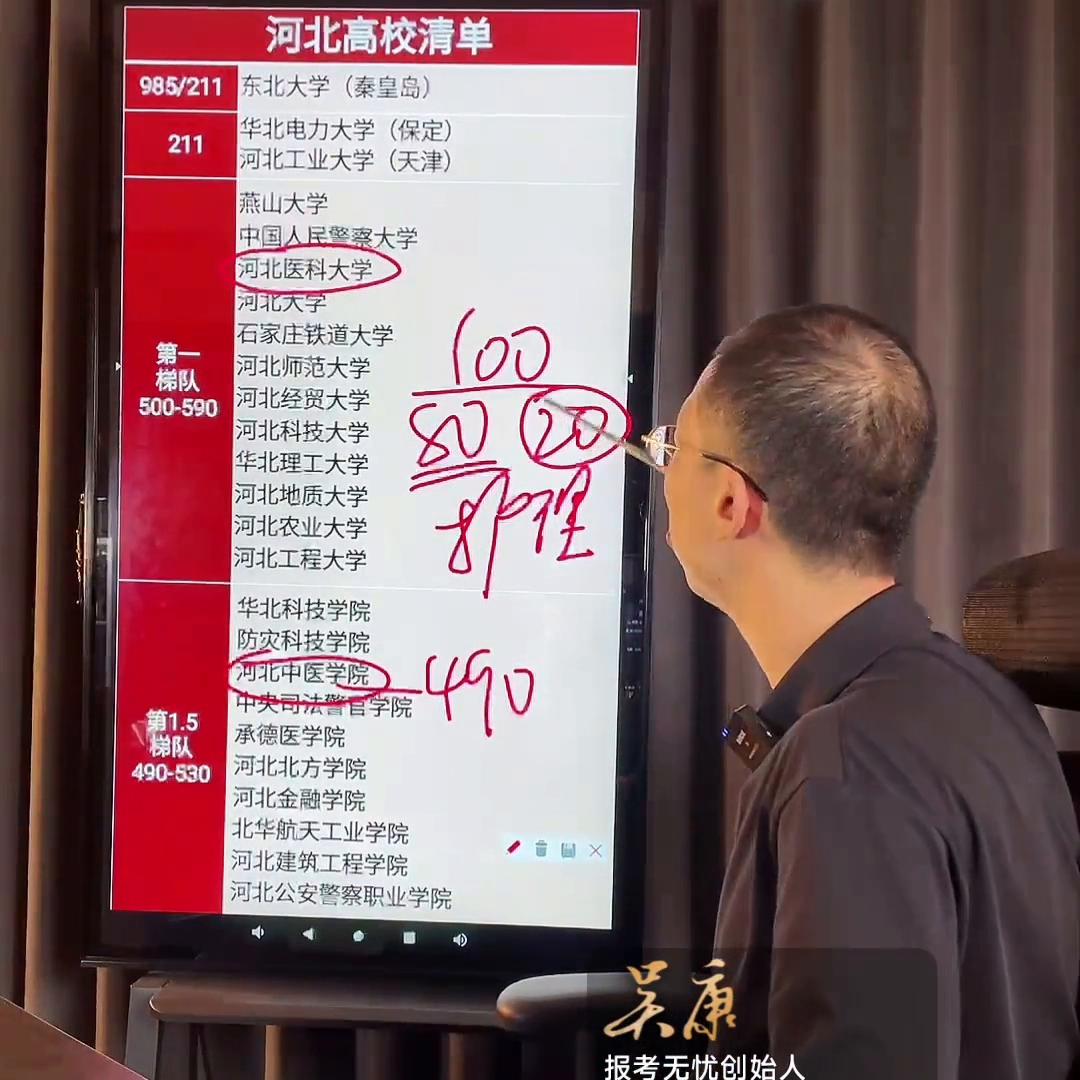 河北高校清单
985/211
东北大学（秦皇岛）
211
华北电力大学（保定）
河北工业大学（天津）
第一
梯队
500-590
燕山大学
中国人民警察大学
河北医科大学
河北大学
石家庄铁道大学
河北师范大学
河北经贸大学
河北科技大学
华北理工大学
河北地质大学
河北农业大学
河北工程大学
100
80 20
护理
第1.5
梯队
490-530
华北科技学院
防灾科技学院
河北中医学院
490
中央司法警官学院
承德医学院
河北北方学院
河北金融学院
北华航天工业学院
河北建筑工程学院
河北公安警察职业学院
吴康
报考无忧创始人